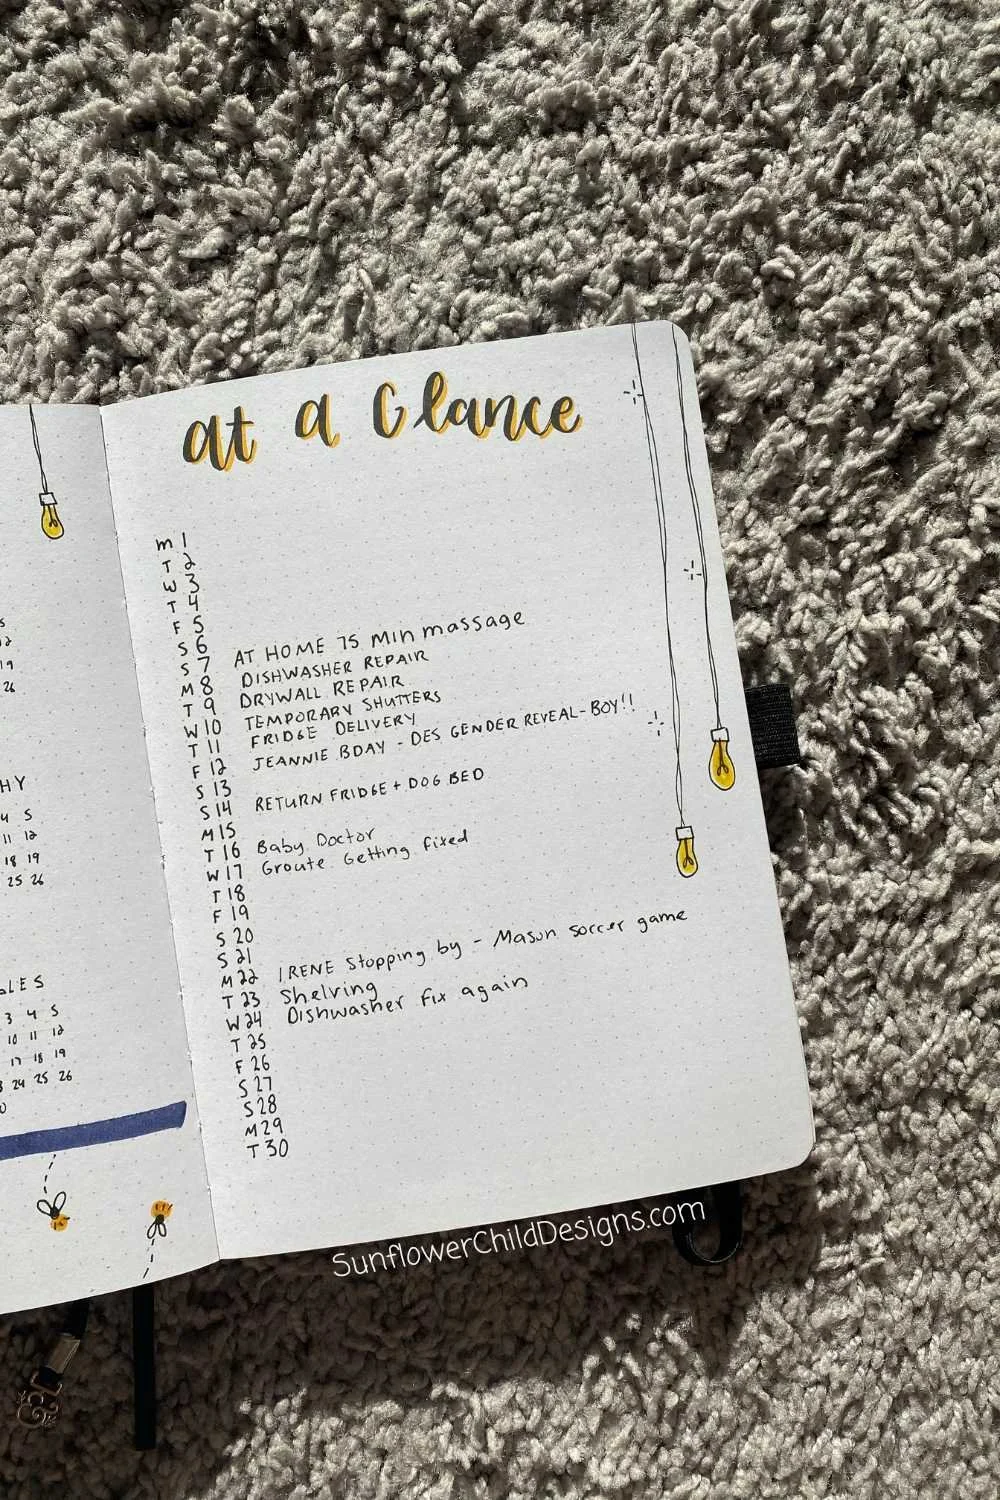 at a Glance
M 1
T 2
W 3
T 4
F 5
S 6
S 7 AT HOME 75 Min massage
M 8 DISHWASHER REPAIR
T 9 DRYWALL REPAIR
W 10 TEMPORARY SHUTTERS
T 11 FRIDGE DELIVERY
F 12 JEANNIE BDAY - DES GENDER REVEAL - BOY!!
S 13
S 14 RETURN FRIDGE + DOG BED
M 15
T 16 Baby Doctor
W 17 Groute Getting fixed
T 18
F 19
S 20
S 21
M 22 IRENE Stopping by - Mason soccer game
T 23 Shelving
W 24 Dishwasher Fix again
T 25
F 26
S 27
S 28
M 29
T 30
19
26
HY
4 5
11 12
18 19
25 26
LES
3 4 5
10 11 12
17 18 19
24 25 26
SunflowerChildDesigns.com